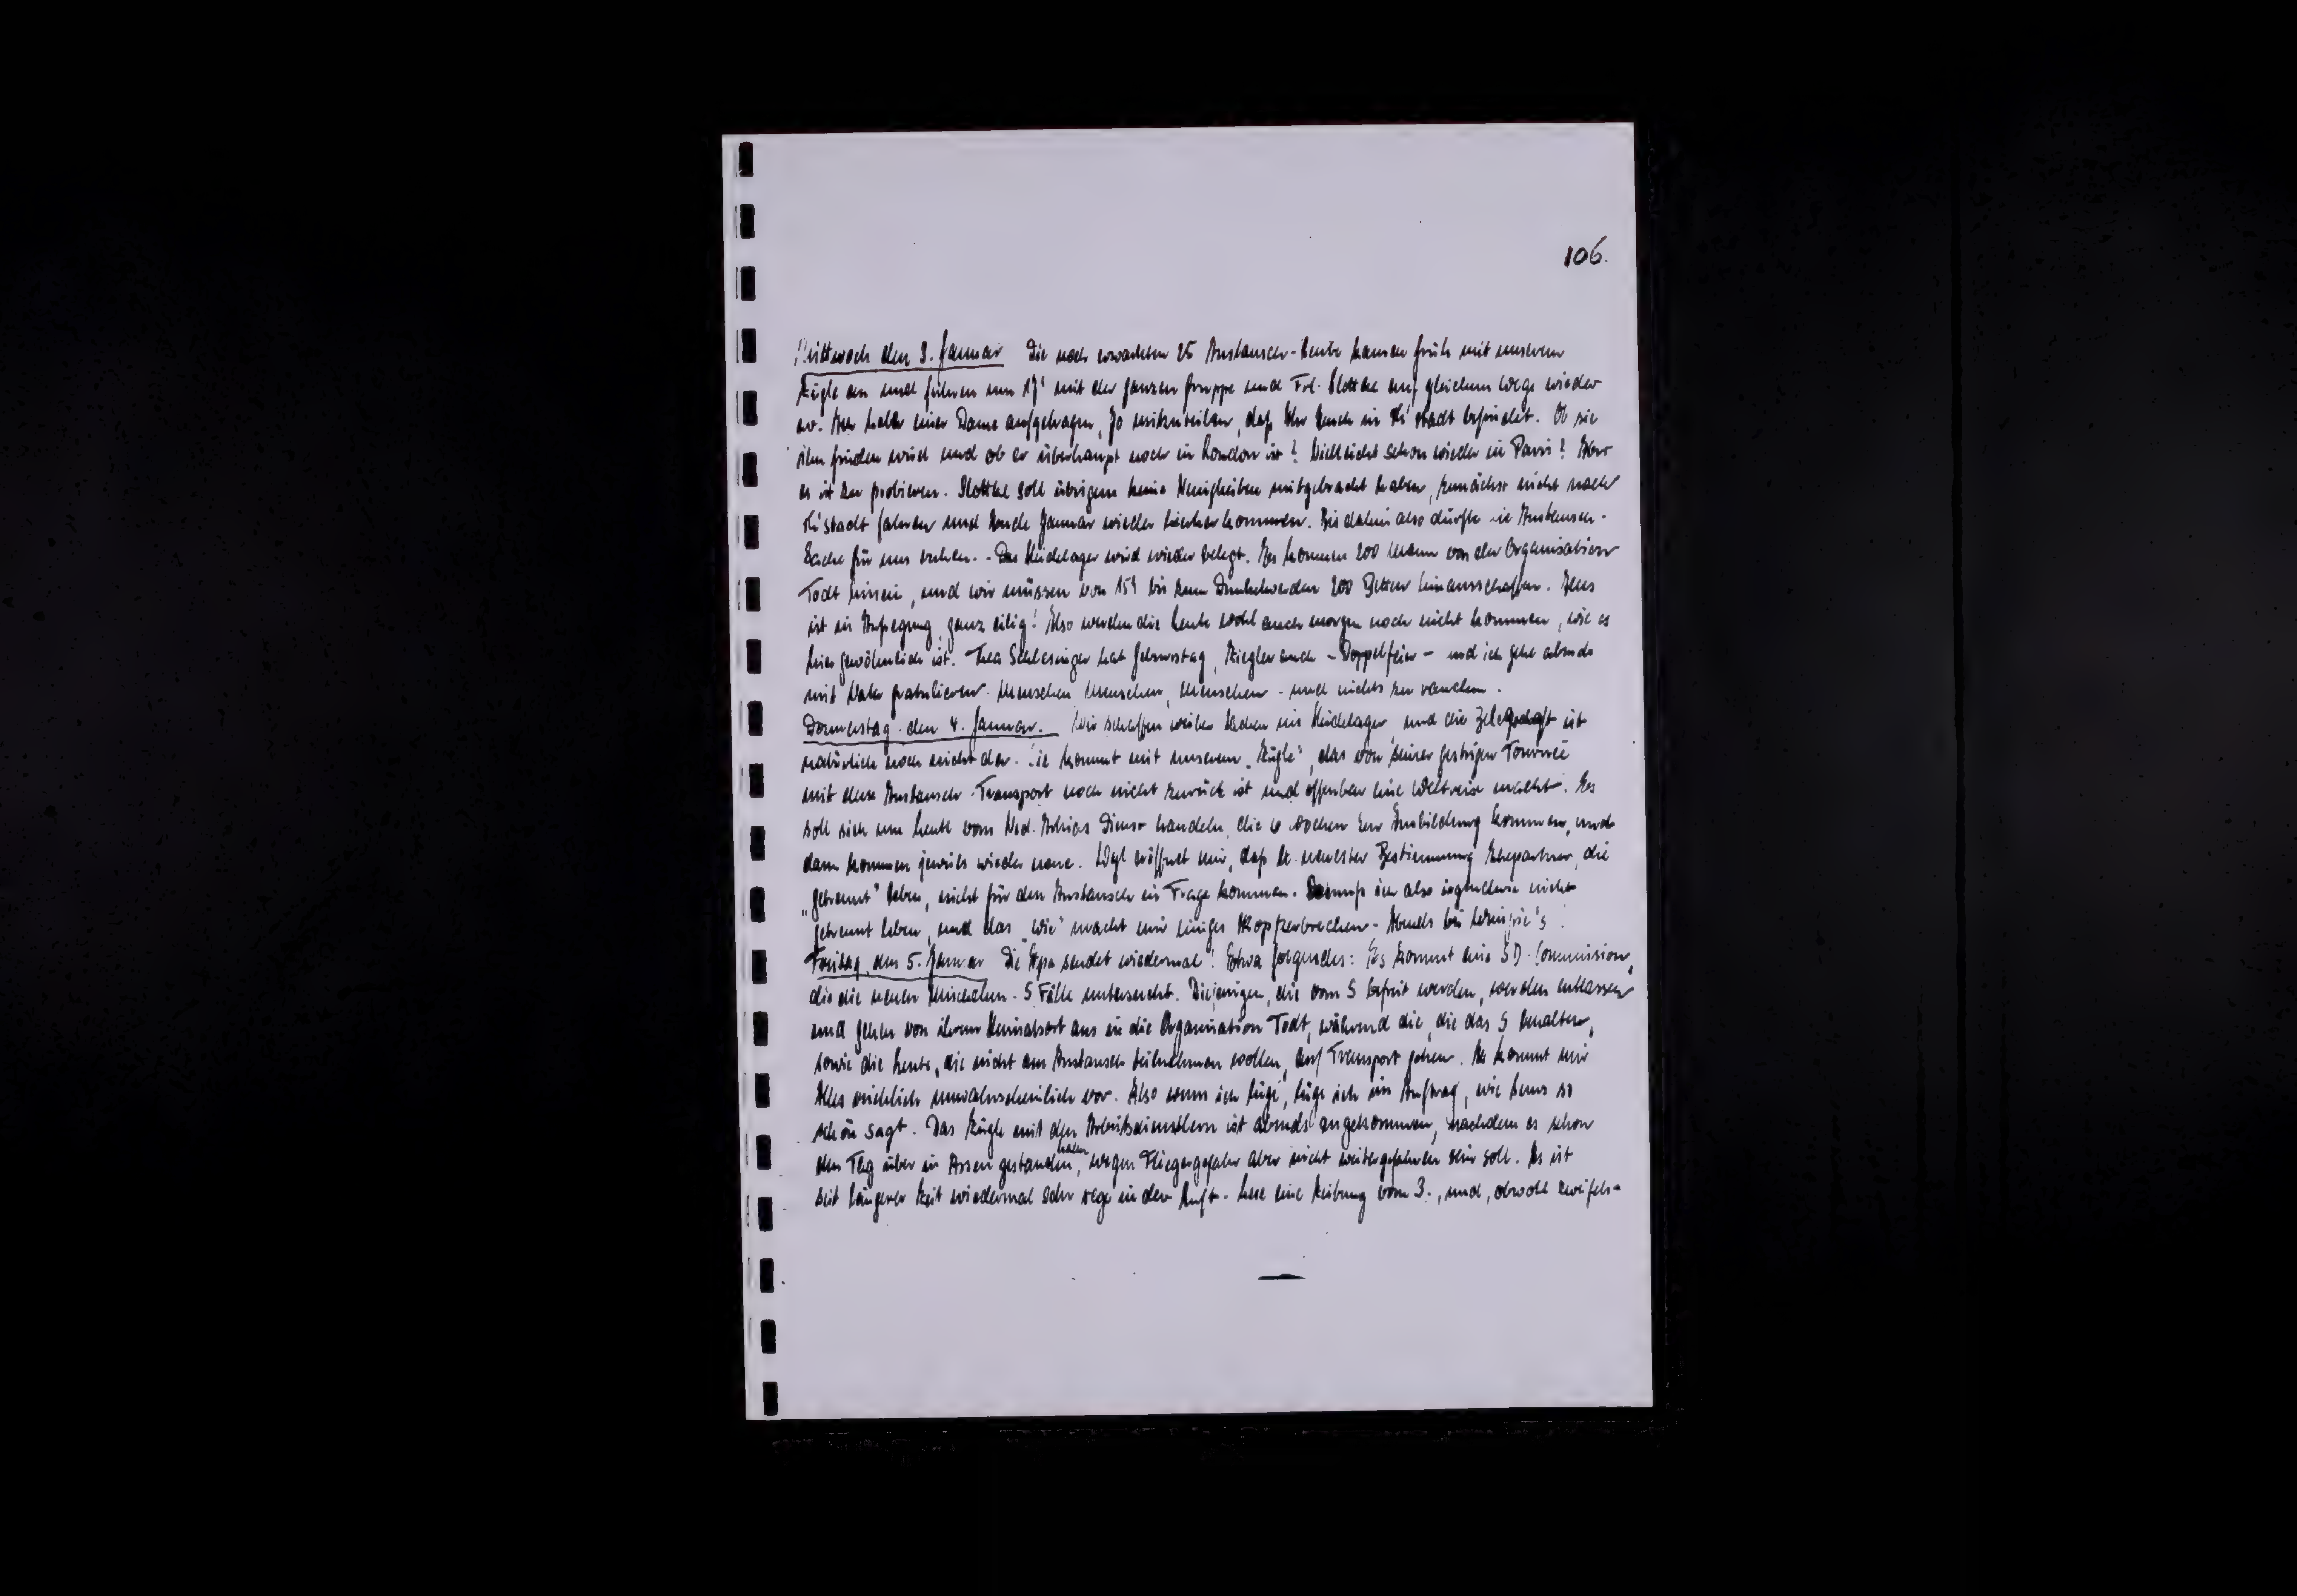 106.
Mittwoch den 3. Januar Die noch erwarteten 25 Austausch-Leute kamen früh mit unserem
Zügle an und fuhren um 17° mit der ganzen Gruppe und Frl. Slottke auf gleichem Wege wieder
ab. Ich habe einer Dame aufgetragen, Jo mitzuteilen, daß Ihr Euch in Th'stadt befindet. Ob sie
ihn finden wird und ob er überhaupt noch in London ist? Vielleicht schon wieder in Paris? Aber
es ist zu probieren. Slottke soll übrigens keine Neuigkeiten mitgebracht haben, zunächst nicht nach
Th'stadt fahren und Ende Januar wieder hierher kommen. Bis dahin also dürfte die Austausch-
Sache für uns ruhen. - Das Heidelager wird wieder belegt. Es kommen 200 Mann von der Organisation
Todt hinein, und wir müssen von 15° bis zum Dunkelwerden 200 Betten hinausschaffen. Alles
ist in Aufregung, ganz eilig! Also werden die Leute wohl auch morgen noch nicht kommen, wie es
hier gewöhnlich ist. Thea Schlesinger hat Geburtstag, Ziegler auch - Doppelfeier - und ich gehe abends
mit gratulieren. Menschen, Menschen, Menschen - und nichts zu rauchen.
Donnerstag den 4. Januar. Wir schaffen weiter Sachen ins Heidelager, und die Belegschaft ist
natürlich noch nicht da. Sie kommt mit unserem „Zügle", das von seiner gestrigen Tournée
mit dem Austausch-Transport noch nicht zurück ist und offenbar eine Weltreise macht. Es
soll sich um Leute vom Ned. Arbeits Dienst handeln, die 6 Wochen zur Ausbildung kommen, und
dann kommen jeweils wieder neue. eröffnet mir, daß lt. neuester Bestimmung Ehepartner, die
„getrennt" leben, nicht für den Austausch in Frage kommen. So muß ich also irgendwie nicht
getrennt leben, und das „wie" macht mir einiges Kopfzerbrechen. Abends bei
Freitag, den 5. Januar Die Ippa sendet wiedermal! Etwa folgendes: Es kommt eine SD-Commission,
die die neuen Mischehen-S Fälle untersucht. Diejenigen, die vom S befreit werden, werden entlassen
und gehen von ihrem Heimatsort aus in die Organisation Todt, während die, die das S behalten,
sowie die Leute, die nicht am Austausch teilnehmen wollen, auf Transport gehen. Es kommt mir
Alles reichlich unwahrscheinlich vor. Also wenn ich lüge, lüge ich im Auftrag, wie so
schön sagt. Das Zügle mit den Arbeitsdienstlern ist abends angekommen, nachdem es schon
den Tag über in Assen gestanden haben, wegen Fliegergefahr aber nicht weitergefahren sein soll. Es ist
seit längerer Zeit wiedermal sehr rege in der Luft. Lese eine Zeitung vom 3., und, obwohl zweifels-